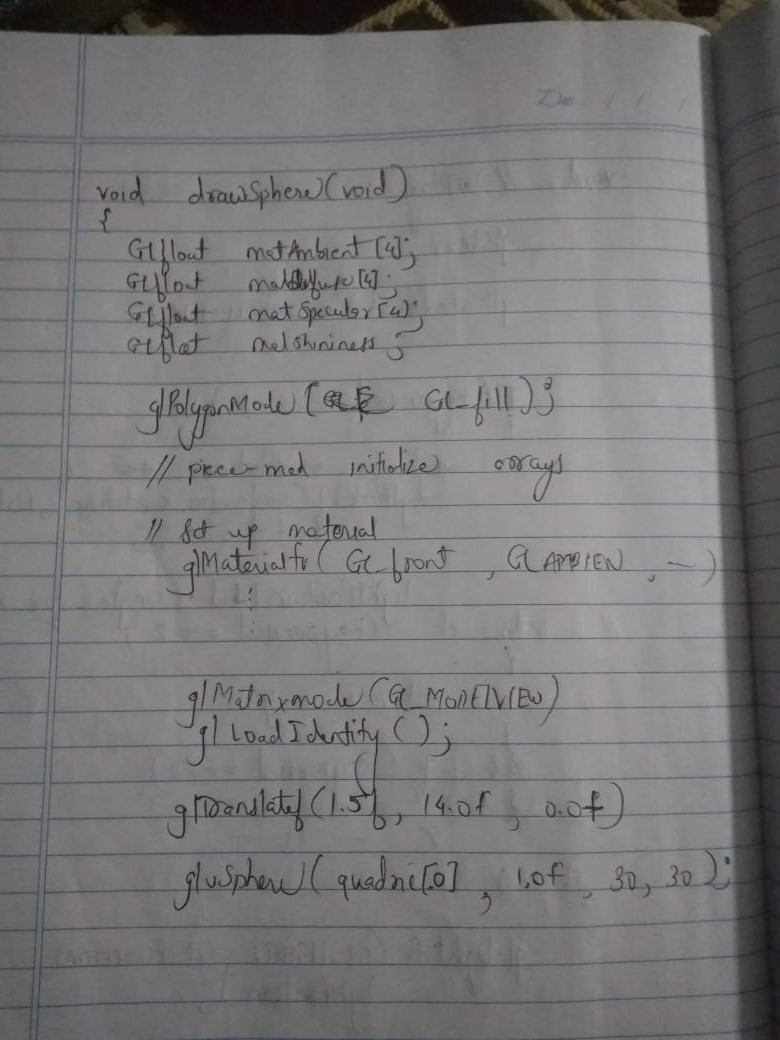 void drawSphere(void)
{
GLfloat matAmbient[4];
GLfloat matdiffuse[4];
GLfloat matSpecular[4];
GLflat matshininess;
glPolygonMode( GL_fill);
// piece-med initialize arrays
// Set up material
glMaterialfv( GL_front , GL AMBIEN , — )
glMatrixmode (GL_MODELVIEW)
gl LoadIdentify ();
glTranslatef(1.5f, 14.0f , 0.0f)
gluSphere( quadric[0] , 1.0f , 30, 30 );